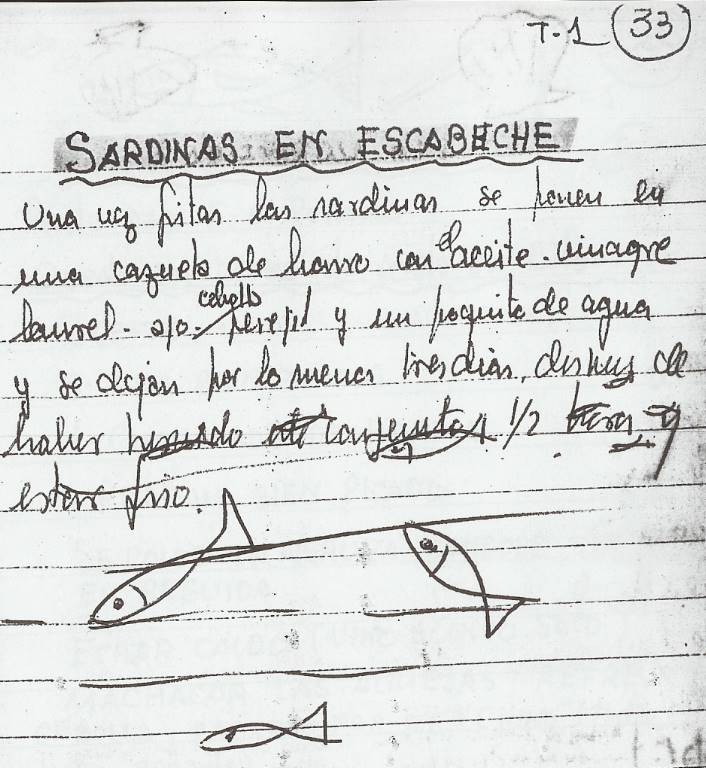 T-1 33
SARDINAS EN ESCABECHE
Una vez fritas las sardinas se ponen en
una cazuela de barro con el aceite. vinagre
laurel. ajo. cebolla perejil y un poquito de agua
y se dejan por lo menos tres dias, despues de
haber hervido 1/2 hora y
estar frio.